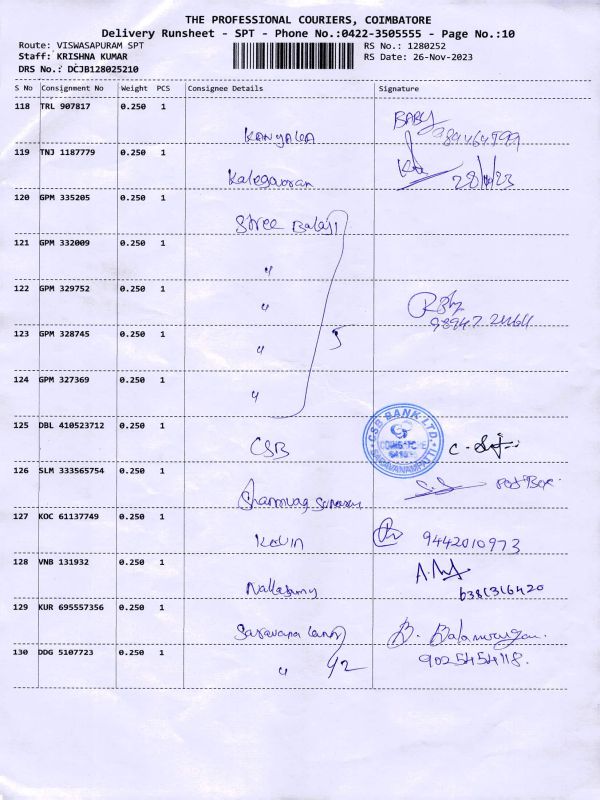 THE PROFESSIONAL COURIERS, COIMBATORE
Delivery Runsheet - SPT - Phone No.:0422-3505555 - Page No.:10
Route: VISWASAPURAM SPT RS No.: 1280252
Staff: KRISHNA KUMAR RS Date: 26-Nov-2023
DRS No.: DCJB128025210
S No Consignment No Weight PCS Consignee Details Signature
118 TRL 907817 0.250 1 BABY
KANYALA
119 TNJ 1187779 0.250 1
28/11/23
120 GPM 335205 0.250 1
Shree Balaji
121 GPM 332009 0.250 1
"
122 GPM 329752 0.250 1
"
98947 21464
123 GPM 328745 0.250 1 5
"
124 GPM 327369 0.250 1
"
125 DBL 410523712 0.250 1
CSB BANK LTD.
SARAVANAMPATTI
CSB
126 SLM 333565754 0.250 1
127 KOC 61137749 0.250 1
Kevin 9442010973
128 VNB 131932 0.250 1
6381316420
129 KUR 695557356 0.250 1
B. Balamurugan.
130 DDG 5107723 0.250 1 9025454118.
"